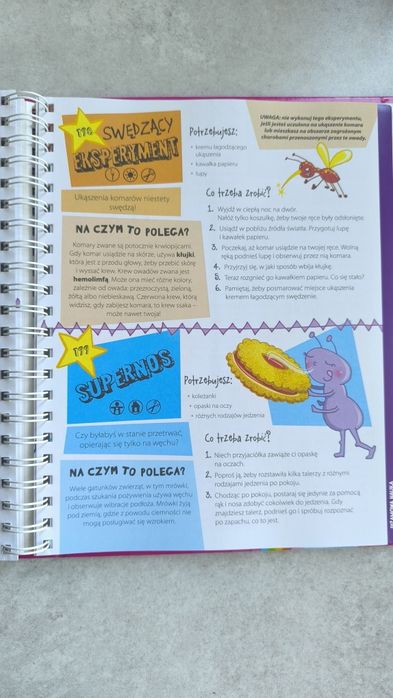 110
SWĘDZĄCY
EKSPERYMENT
Ukąszenia komarów niestety
swędzą!
NA CZYM TO POLEGA?
Komary zwane są potocznie krwiopijcami.
Gdy komar usiądzie na skórze, używa kłujki,
która jest z przodu głowy, żeby przebić skórę
i wyssać krew. Krew owadów zwana jest
hemolimfą. Może ona mieć różne kolory,
zależnie od owada: przezroczystą, zieloną,
żółtą albo niebieskawą. Czerwona krew, którą
widzisz, gdy zabijesz komara, to krew ssaka –
może nawet twoja!
Potrzebujesz:
• kremu łagodzącego
ukąszenia
• kawałka papieru
• lupy
UWAGA: nie wykonuj tego eksperymentu,
jeśli jesteś uczulona na ukąszenie komara
lub mieszkasz na obszarze zagrożonym
chorobami przenoszonymi przez te owady.
Co trzeba zrobić?
1. Wyjdź w ciepłą noc na dwór.
Nałóż tylko koszulkę, żeby twoje ręce były odsłonięte.
2. Usiądź w pobliżu źródła światła. Przygotuj lupę
i kawałek papieru.
3. Poczekaj, aż komar usiądzie na twojej ręce. Wolną
ręką podnieś lupę i obserwuj przez nią komara.
4. Przyjrzyj się, w jaki sposób wbija kłujkę.
5. Teraz rozgnieć go kawałkiem papieru. Co się stało?
6. Pamiętaj, żeby posmarować miejsce ukąszenia
kremem łagodzącym swędzenie.
111
SUPERNOS
Czy byłabyś w stanie przetrwać,
opierając się tylko na węchu?
NA CZYM TO POLEGA?
Wiele gatunków zwierząt, w tym mrówki,
podczas szukania pożywienia używa węchu
i obserwuje wibracje podłoża. Mrówki żyją
pod ziemią, gdzie z powodu ciemności nie
mogą posługiwać się wzrokiem.
Potrzebujesz:
• koleżanki
• opaski na oczy
• różnych rodzajów jedzenia
Co trzeba zrobić?
1. Niech przyjaciółka zawiąże ci opaskę
na oczach.
2. Poproś ją, żeby rozstawiła kilka talerzy z różnymi
rodzajami jedzenia po pokoju.
3. Chodząc po pokoju, postaraj się jedynie za pomocą
rąk i nosa zdobyć cokolwiek do jedzenia. Gdy
znajdziesz talerz, podnieś go i spróbuj rozpoznać
po zapachu, co to jest.